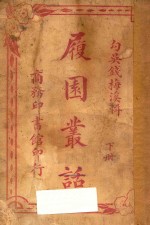 勾吳錢梅溪輯
下冊
履園叢話
商務印書館發行